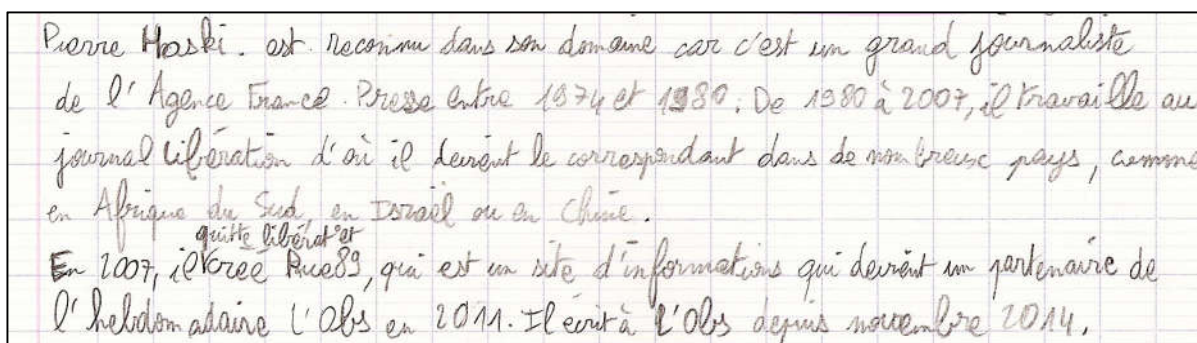 Pierre Haski. est reconnu dans son domaine car c'est un grand journaliste
de l'Agence France Presse entre 1974 et 1980. De 1980 à 2007, il travaille au
journal Libération d'où il devient le correspondant dans de nombreux pays, comme
en Afrique du Sud, en Israël ou en Chine.
quitte libérat° et
En 2007, il créé Rue89, qui est un site d'informations qui devient un partenaire de
l'hebdomadaire L'Obs en 2011. Il écrit à L'Obs depuis novembre 2014.